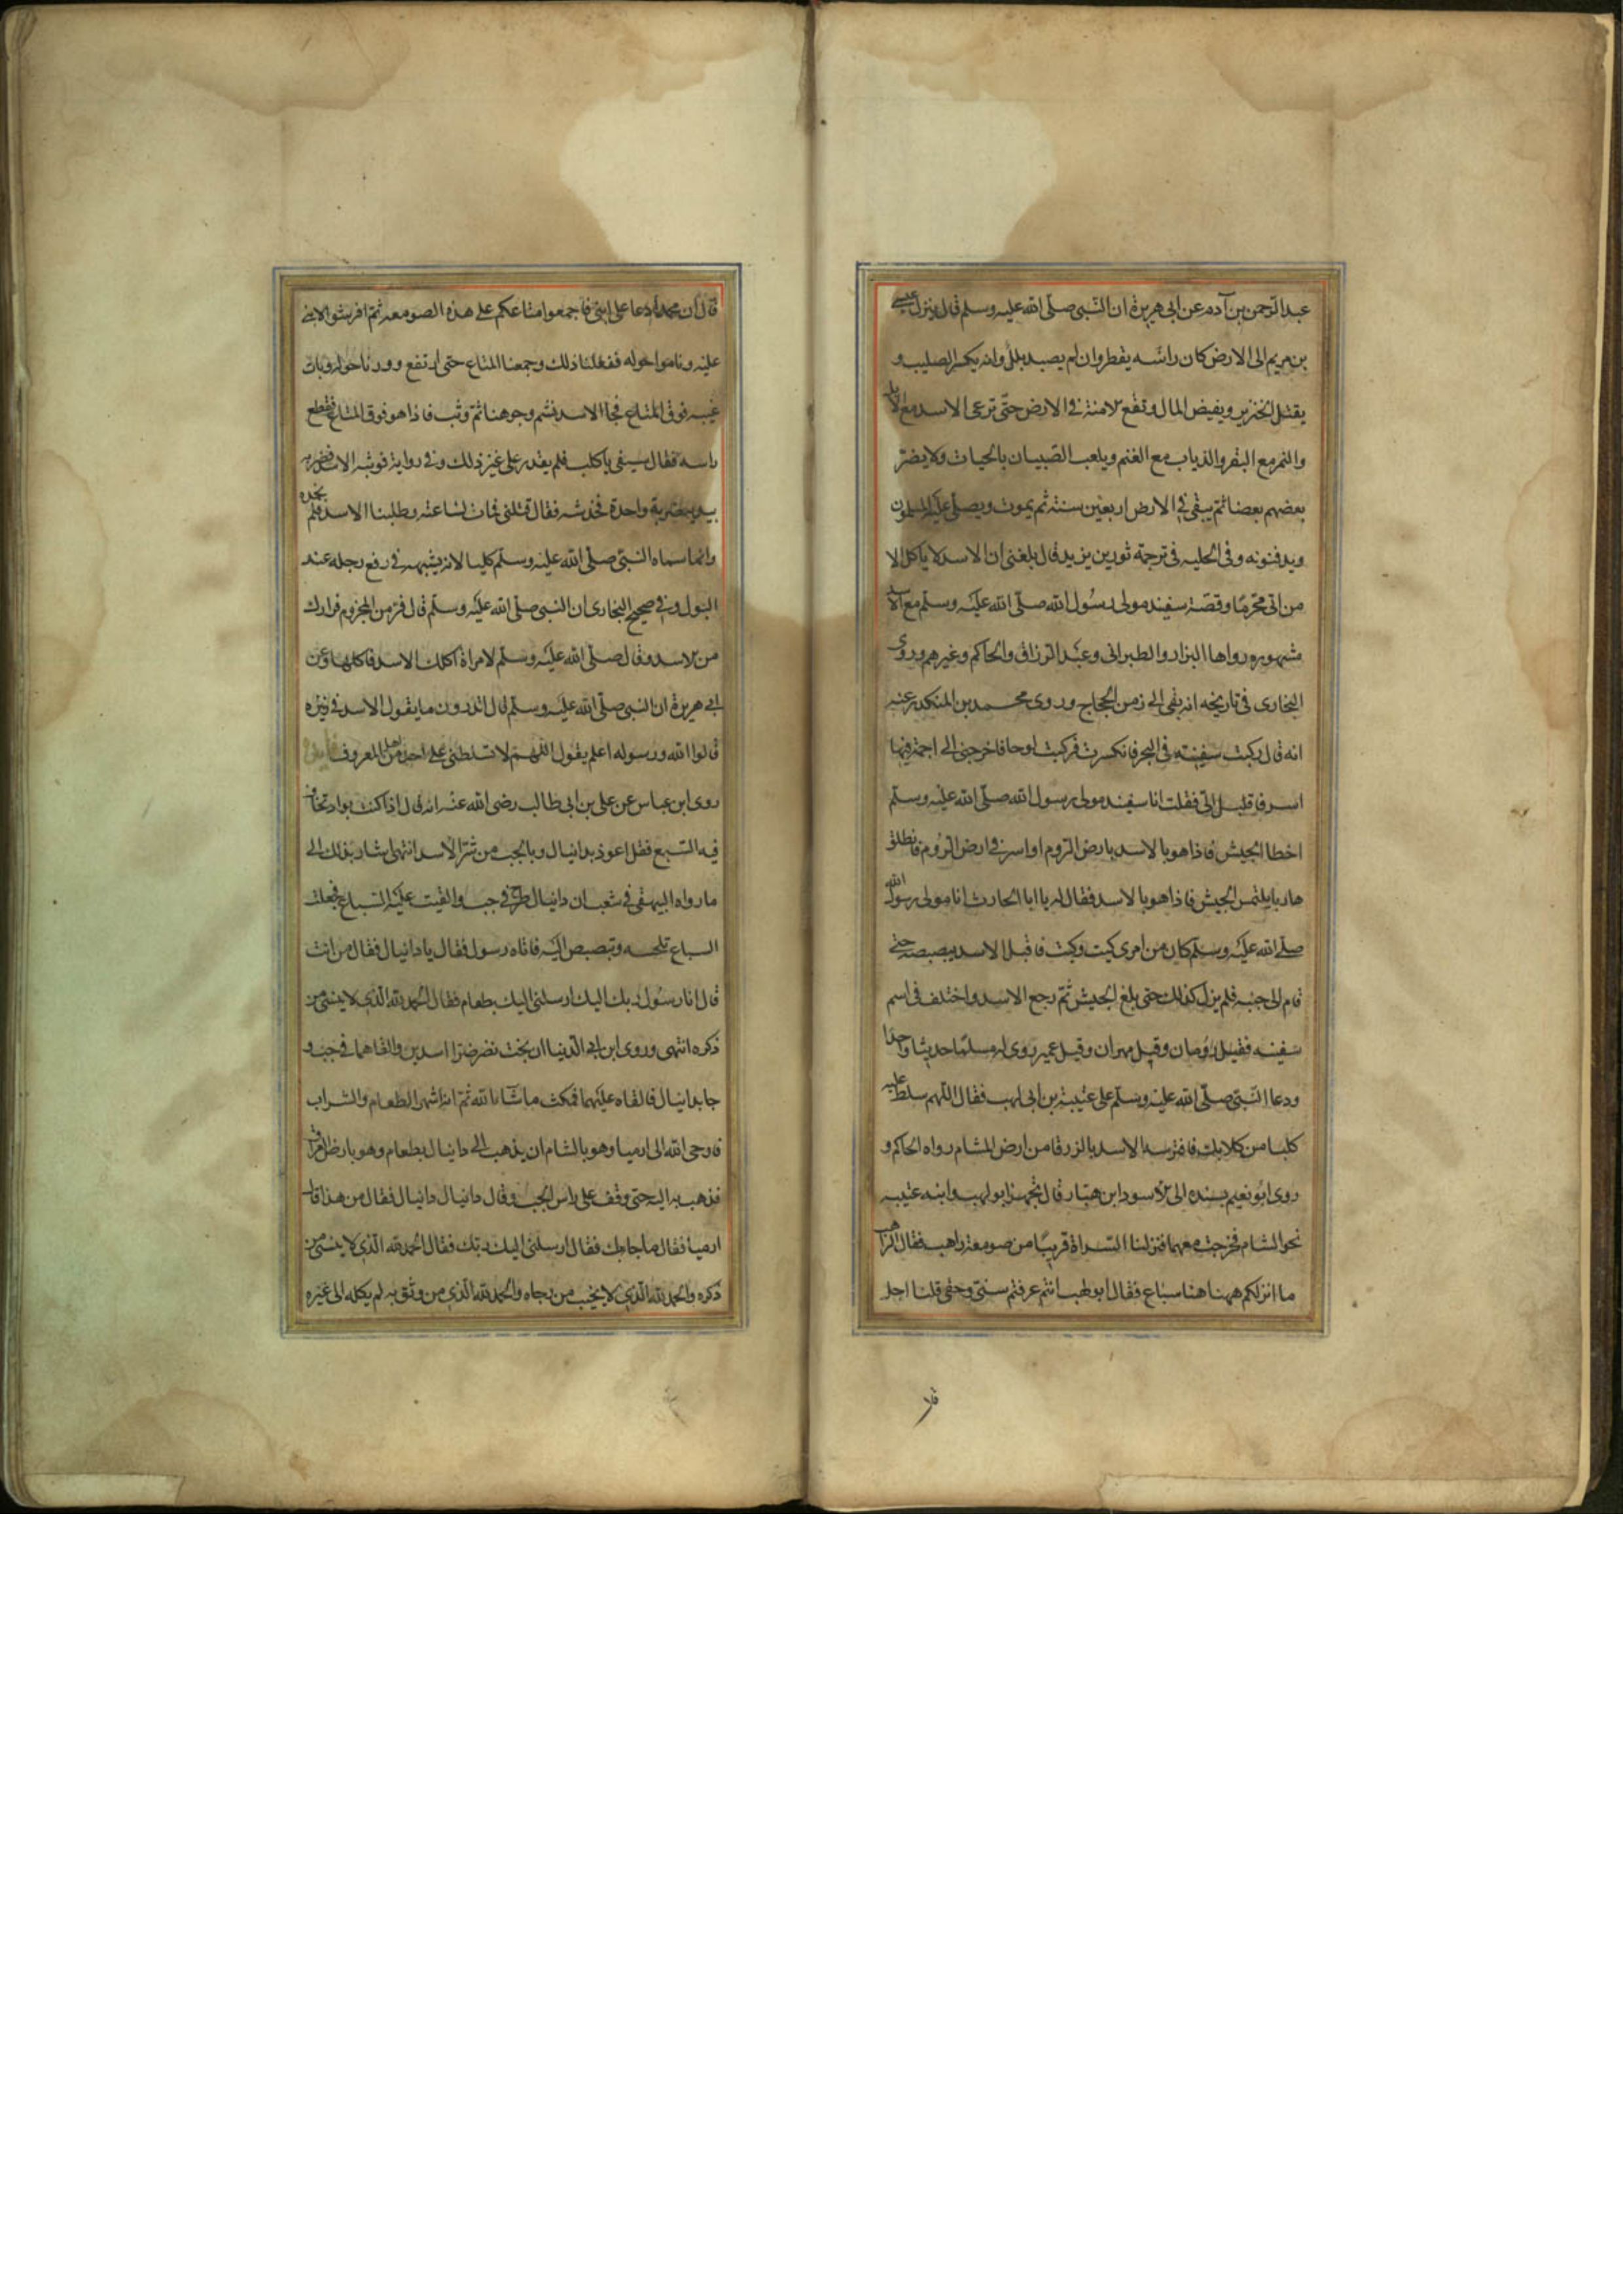 عبد الرّحمن بن آدم عن ابى هريرة ان النّبى صلّى الله عليه وسلّم قال ينزل عيسى
بن مريم الى الارض كان راسه يقطر وان لم يصبه بلل وانه يكسر الصليب و
يقتل الخنزير ويفيض المال وتقع الامنة فى الارض حتّى ترعى الاسد مع الابل
والنمر مع البقر والذياب مع الغنم ويلعب الصّبيان بالحيات ولا يضرّ
بعضهم بعضا ثم يبقى فى الارض اربعين سنة ثم يموت ويصلّى عليه المسلمون
ويدفنونه وفى الحليه فى ترجمة ثور بن يزيد قال بلغنى ان الاسد لا ياكل الا
من اتى محّرمًا وقصّة سفينه مولى رسول الله صلّى الله عليه وسلّم مع الاسد
مشهوره رواها البزار والطبرانى وعبد الرزاق والحاكم وغيرهم وروى
البخارى فى تاريخه انه بقى الى زمن الحجاج وروى محمد بن المنكدر عنه
انه قال ركبت سفينه فى البحر فانكسرت فركبت لوحا فاخرجنى الى اجمة فيها
اسد فاقبل الىّ فقلت انا سفينه مولى رسول الله صلّى الله عليه وسلّم
اخطا الجيش فاذا هو بالاسد بارض الرّوم او اسر فى ارض الرّوم فانطلق
هاربا يلتمس الجيش فاذا هو بالاسد فقال له يا ابا الحارث انا مولى رسول الله
صلّى الله عليه وسلّم كان من امرى كيت وكيت فاقبل الاسد يبصبصه حتى
قام الى جنبه فلم يزل كذلك حتى بلغ الجيش ثمّ رجع الاسد واختلف فى اسم
سفينه فقيل رومان وقيل مهران وقيل عمير روى له مسلم حديثا واحدا
ودعا النّبى صلّى الله عليه وسلّم على عتيبة بن ابى لهب فقال اللّهم سلط عليه
كلبا من كلابك فافترسه الاسد بالزرقا من ارض الشام رواه الحاكم و
روى ابو نعيم بسنده الى الاسود ابن هبّار قال تجهز ابو لهب وابنه عتيبه
نحو الشام فخرجت معهما فنزلنا السّراة قريبًا من صومعة راهب فقال الرّاهب
ما انزلكم ههنا هنا سباع فقال ابو لهب انتم عرفتم سنّى وحقى قلنا اجل
قال
قال ان محمدا دعا على ابنى فاجمعوا متاعكم على هذه الصومعه ثمّ افرشوا لابنى
عليه وناموا حوله ففعلنا ذلك وجمعنا المتاع حتى ارتفع ودرنا حوله وبات
عتيبه فوق المتاع فجا الاسد فشم وجوهنا ثمّ وثب فاذا هو فوق المتاع فقطع
راسه فقال سيفى يا كلب فلم يقدر على غير ذلك وفى رواية فوثب الاسد فضربه
بيده ضربة واحدة فخدشه فقال قتلنى فمات لساعته وطلبنا الاسد فلم نجده
وانما سماه النّبى صلّى الله عليه وسلّم كلبا لانه يشبهه فى رفع رجله عند
البول وفى صحيح البخارى ان النبى صلّى الله عليه وسلّم قال فرّ من المجزوم فرارك
من الاسد وقال صلّى الله عليه وسلّم لامراة اكلك الاسد فاكلها وعن
ابى هريرة ان النبى صلّى الله عليه وسلّم قال اتدرون ما يقول الاسد فى زئيره
قالوا الله ورسوله اعلم يقول اللّهمّ لا تسلطنى على احد من اهل المعروف
روى ابن عباس عن على بن ابى طالب رضى الله عنه انه قال اذا كنت بواد تخاف
فيه السّبع فقل اعوذ بدانيال وبالجب من شرّ الاسد انتهى اشار بذلك الى
ما رواه البيهقى فى شعبه ان دانيال طرح فى جب والقيت عليه السّباع فجعلت
السباع تلحسه وتبصبص اليه فاتاه رسول فقال يا دانيال فقال من انت
قال انا رسول ربك اليك ارسلنى اليك بطعام فقال الحمد لله الّذى لا ينسى من
ذكره انتهى وروى ابن ابى الدّنيا ان بخت نصر ضرّا اسدين والقاهما فى جب و
جا بدانيال فالقاه عليهما فمكث ما شا الله ثمّ انه اشتهى الطعام والشراب
فاوحى الله الى ارميا وهو بالشام ان يذهب الى دانيال بطعام وهو بارض العراق
فذهب به اليه حتى وقف على راس الجب وقال دانيال دانيال فقال من هذا قال
ارميا فقال ما جا بك فقال ارسلنى اليك ربك فقال الحمد لله الّذى لا ينسى من
ذكره والحمد لله الّذى لا يخيب من رجاه والحمد لله الّذى من وثق به لم يكله الى غيره